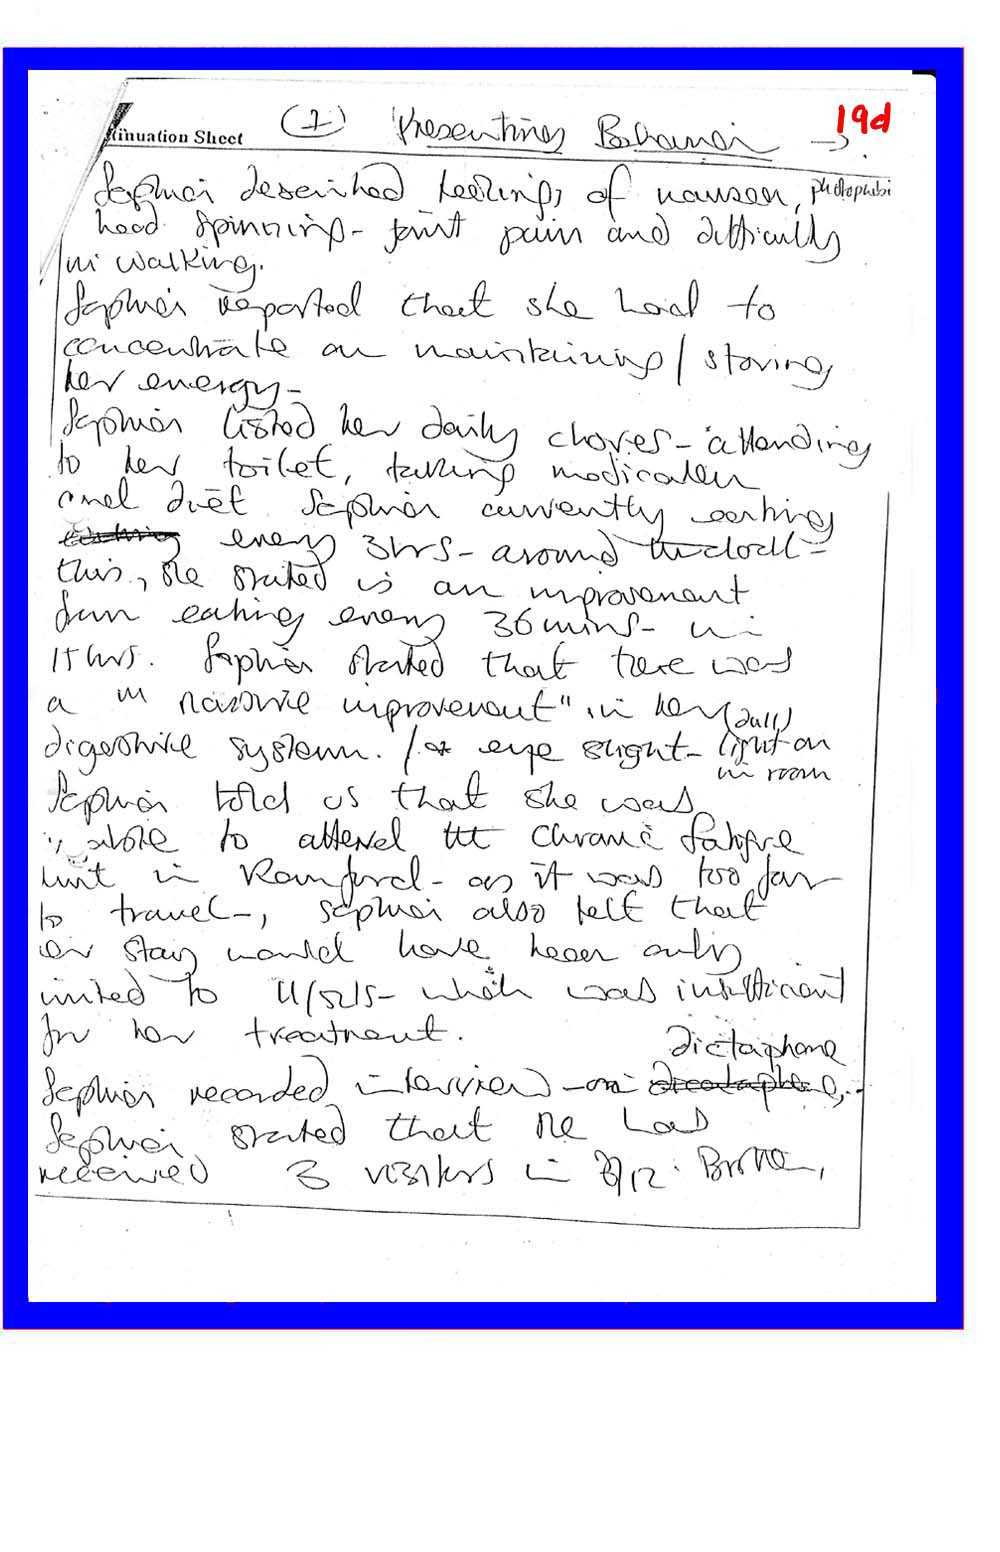 tinuation Sheet (7) Presenting Behaviour → 19d
Sophia described feelings of nausea, photophobi
head spinning - joint pain and difficulty
in walking.
Sophia reported that she had to
concentrate on maintaining / storing
her energy -
Sophia listed her daily chores - attending
to her toilet, taking medication
and diet Sophia currently eating
every 3hrs - around the clock -
this, she stated is an improvement
from eating every 36 mins - in
15 hrs. Sophia stated that there was
a "massive improvement" in her
digestive system. / eye sight - (dull) light on
in room
Sophia told us that she was
able to attend the Chronic fatigue
unit in Romford - as it was too far
to travel -, Sophia also felt that
er stay would have been only
imited to 4/52/5 - which was insufficient
for her treatment.
Sophia recorded interview - on dictaphone
Sophia stated that she had
received 3 visitors in /12.